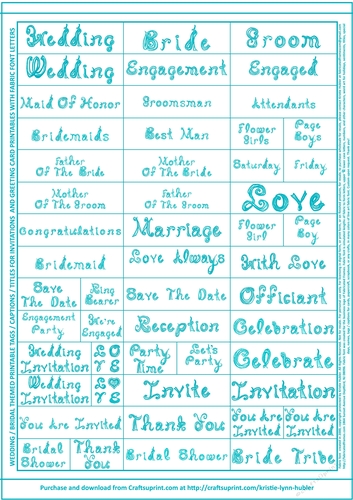 WEDDING / BRIDAL THEMED PRINTABLE TAGS / CAPTIONS / TITLES FOR INVITATIONS AND GREETING CARD PRINTABLES WITH FABRIC FONT LETTERS
Wedding
Bride
Groom
Wedding
Engagement
Engaged
Maid Of Honor
Groomsman
Attendants
Bridemaids
Best Man
Flower
Girls
Page
Boys
Father
Of The Bride
Mother
Of The Bride
Saturday
Friday
Mother
Of The Groom
Father
Of The Groom
Love
Congratulations
Marriage
Flower
Girl
Page
Boy
Bridemaid
Love Always
With Love
Save
The Date
Ring
Bearer
Save The Date
Officiant
Engagement
Party
We're
Engaged
Reception
Celebration
Wedding
Invitation
LO
VE
Party
Time
Let's
Party
Celebrate
Wedding
Invitation
L♥
VE
Invite
Invitation
You Are Invited
Thank You
You Are
Invited
You Are
Invited
Bridal
Shower
Thank
You
Bridal Shower
Bride Tribe
Purchase and download from Craftsuprint.com at http://craftsuprint.com/kristie-lynn-hubler